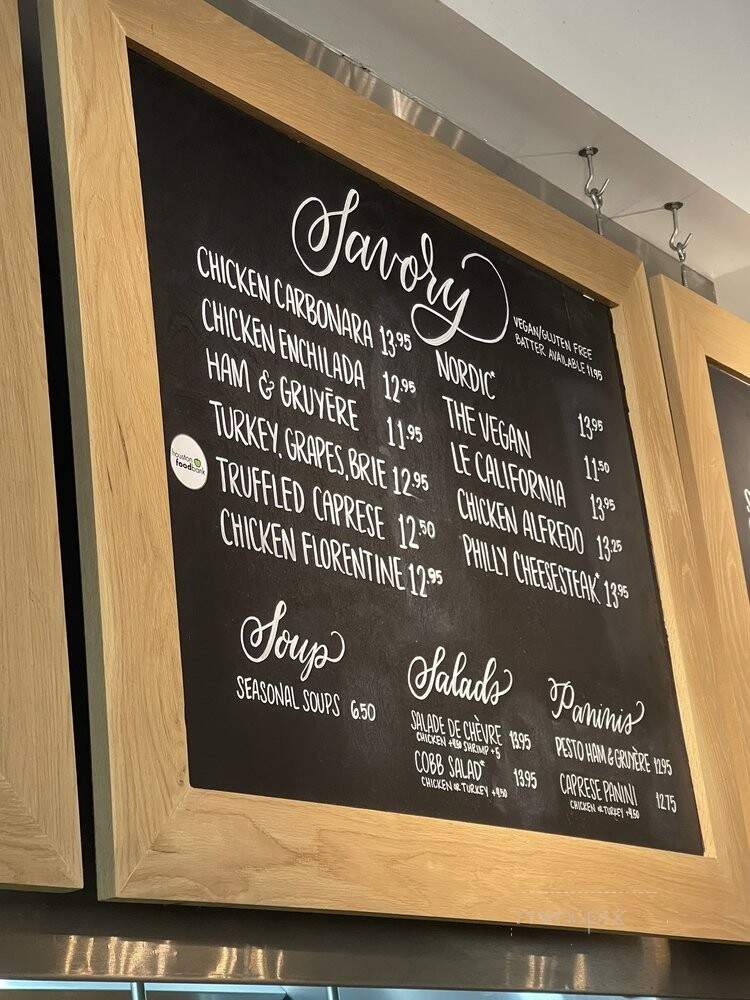 Savory
CHICKEN CARBONARA 13.95
CHICKEN ENCHILADA 12.95
HAM & GRUYĒRE 11.95
TURKEY, GRAPES, BRIE 12.95
TRUFFLED CAPRESE 12.50
CHICKEN FLORENTINE 12.95
VEGAN/GLUTEN FREE
BATTER AVAILABLE 11.95
NORDIC* 13.95
THE VEGAN 11.50
LE CALIFORNIA 13.95
CHICKEN ALFREDO 13.25
PHILLY CHEESESTEAK* 13.95
houston
foodbank
Soup
SEASONAL SOUPS 6.50
Salads
SALADE DE CHÈVRE 13.95
CHICKEN +4.50 SHRIMP +5
COBB SALAD* 13.95
CHICKEN OR TURKEY +4.50
Paninis
PESTO HAM & GRUYÈRE 12.95
CAPRESE PANINI 12.75
CHICKEN OR TURKEY +4.50